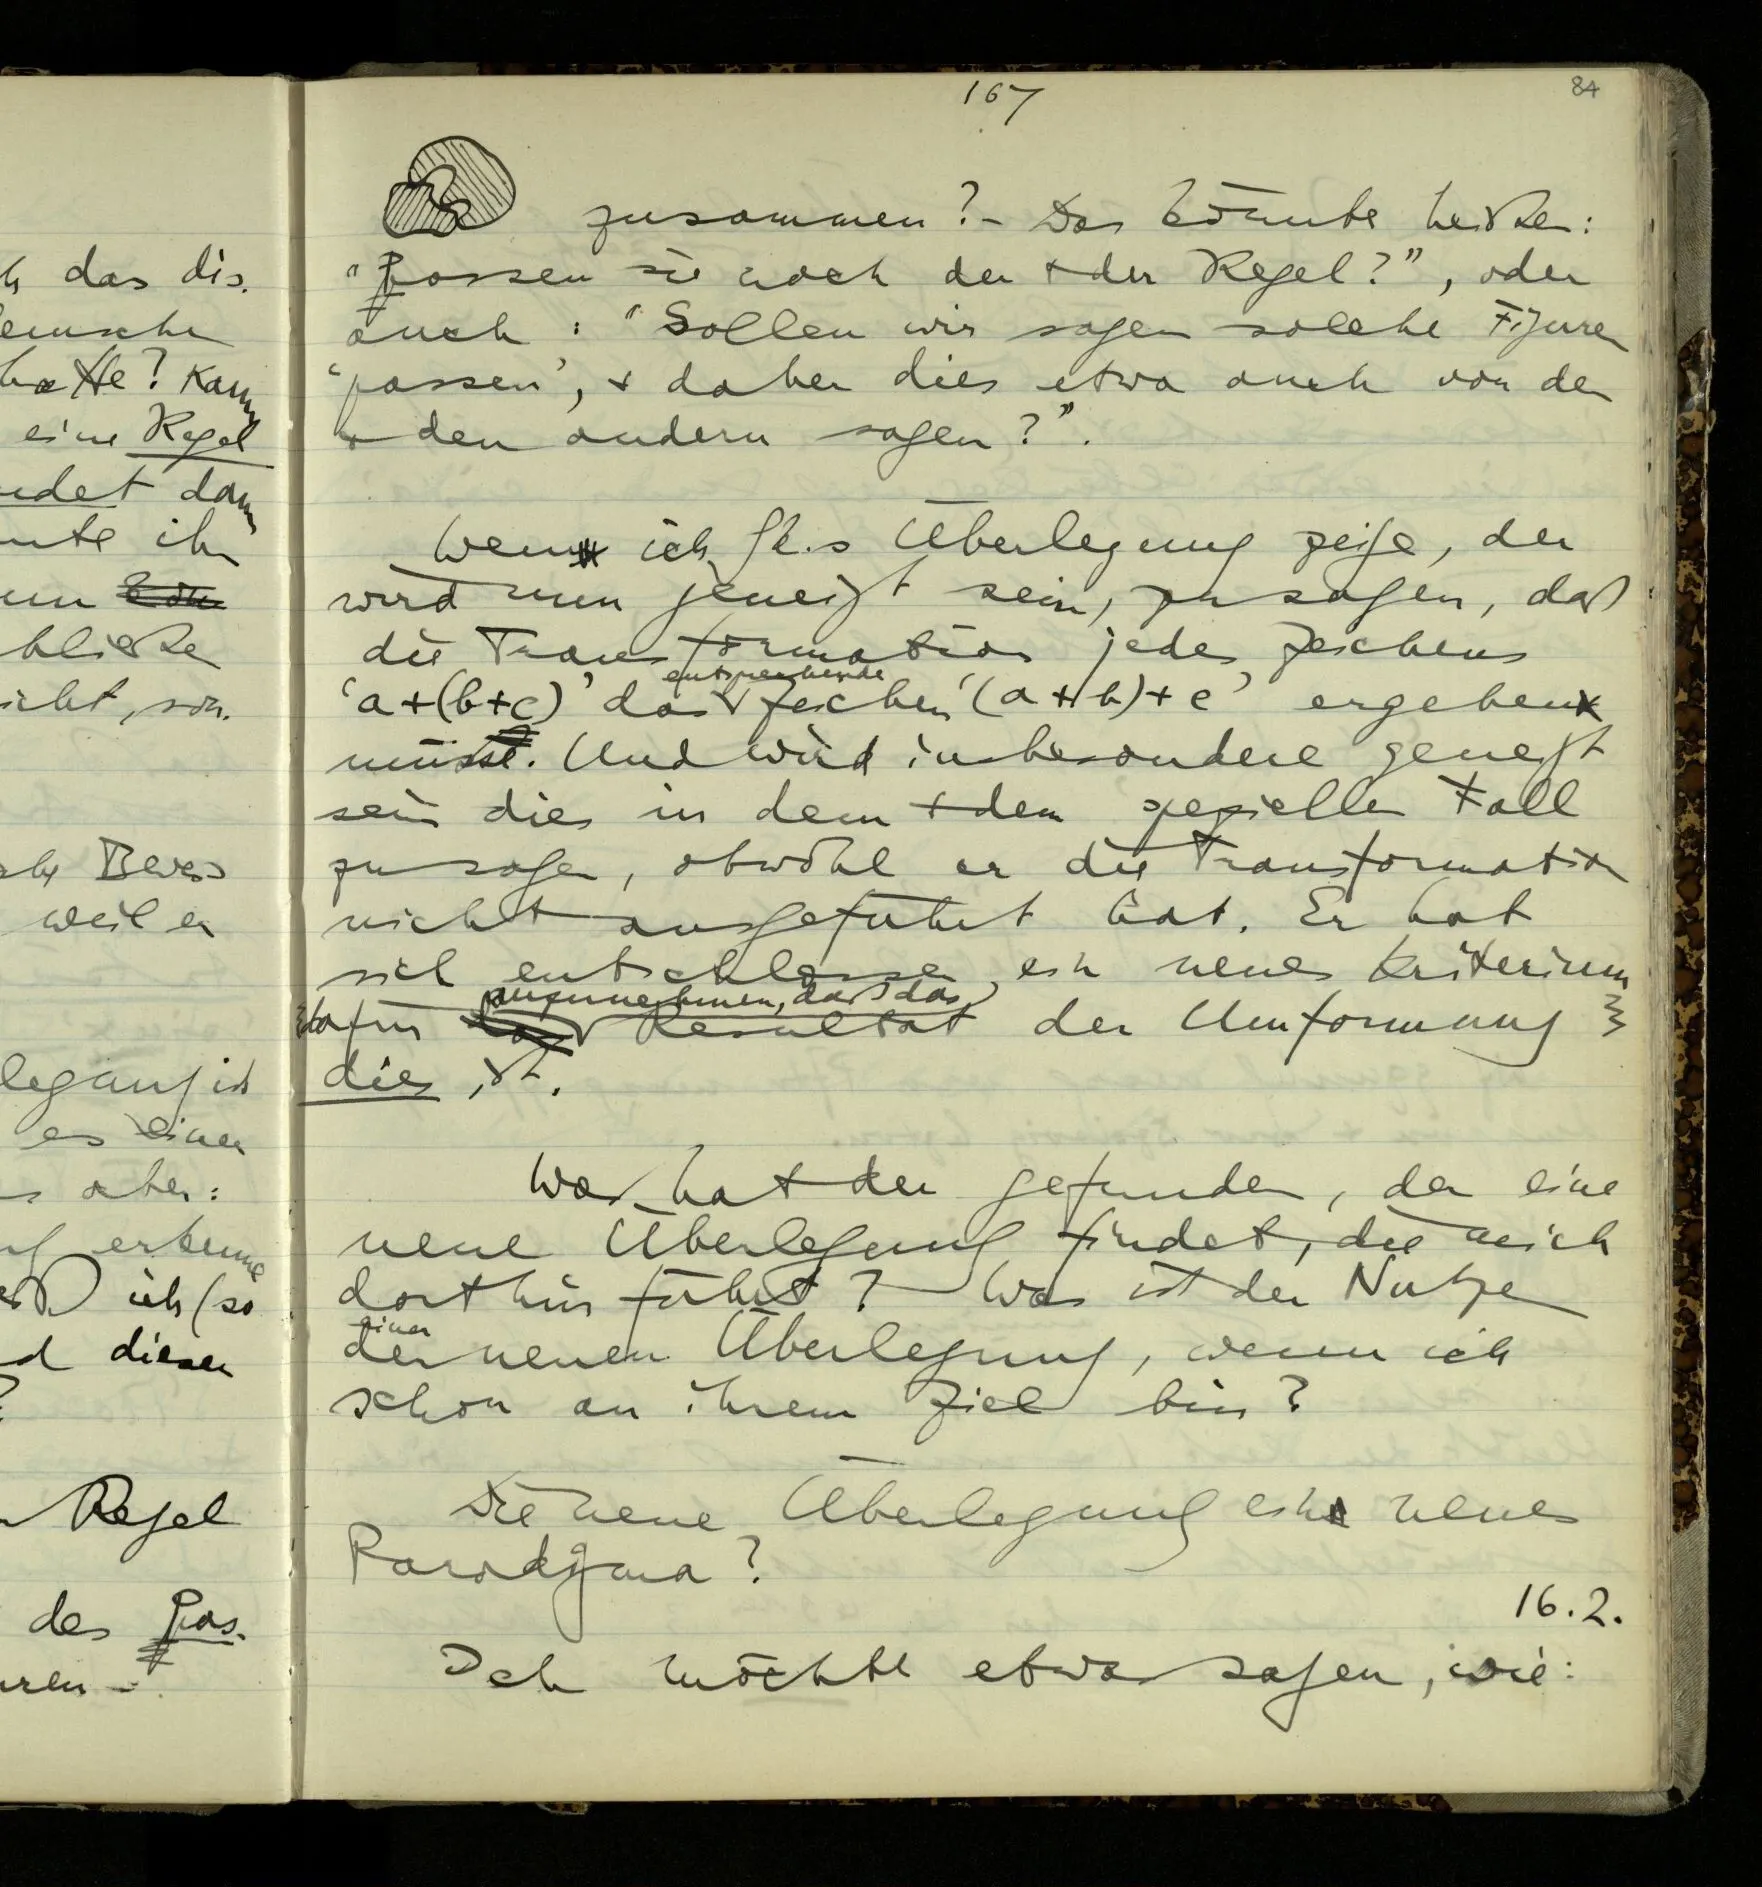 167
84
zusammen? – Das könnte heißen:
"Passen sie nach der + der Regel?", oder
auch: "Sollen wir sagen solche Figuren
'passen', + daher dies etwa auch von den
+ den andern sagen?".
Wem ich Sk.s Überlegung zeige, der
wird nun geneigt sein, zu sagen, daß
die Transformation jedes Zeichens
entsprechende
'a+(b+c)' das Zeichen '(a+b)+c' ergeben
müsse. Und wird insbesondere geneigt
sein dies in dem + dem speziellen Fall
zu sagen, obwohl er die Transformation
nicht ausgeführt hat. Er hat
sich entschlossen, ein neues Kriterium
anzunehmen, daß das
dafür Resultat der Umformung
dies ist.
Was hat der gefunden, der eine
neue Überlegung findet, die mich
dorthin führt? Was ist der Nutzen
einer
der neuen Überlegung, wenn ich
schon an ihrem Ziel bin?
Die neue Überlegung ein neues
Paradigma?
16.2.
Ich möchte etwas sagen, wie:
h das dis-
hatte? Kann
eine Regel
ndet dann
nnte ihn
icht, son-
Beweis
weil er
legung ist
es einen
s aber:
erkenne
ich (so
d diesen
Regel
des Pas-